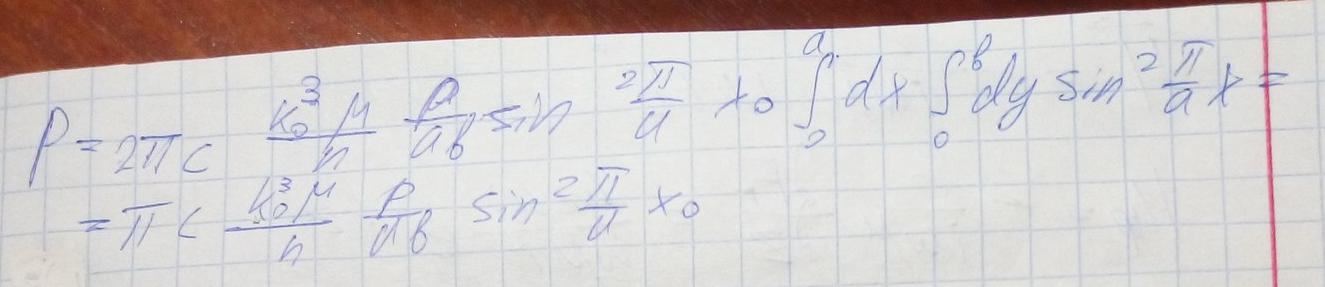 P = 2πc \frac{k_0^3 μ}{n} \frac{P}{ab} sin^2 \frac{π}{a} x_0 ∫_0^a dx ∫_0^b dy sin^2 \frac{π}{a} x =
= πc \frac{k_0^3 μ}{n} \frac{P}{ab} sin^2 \frac{π}{a} x_0